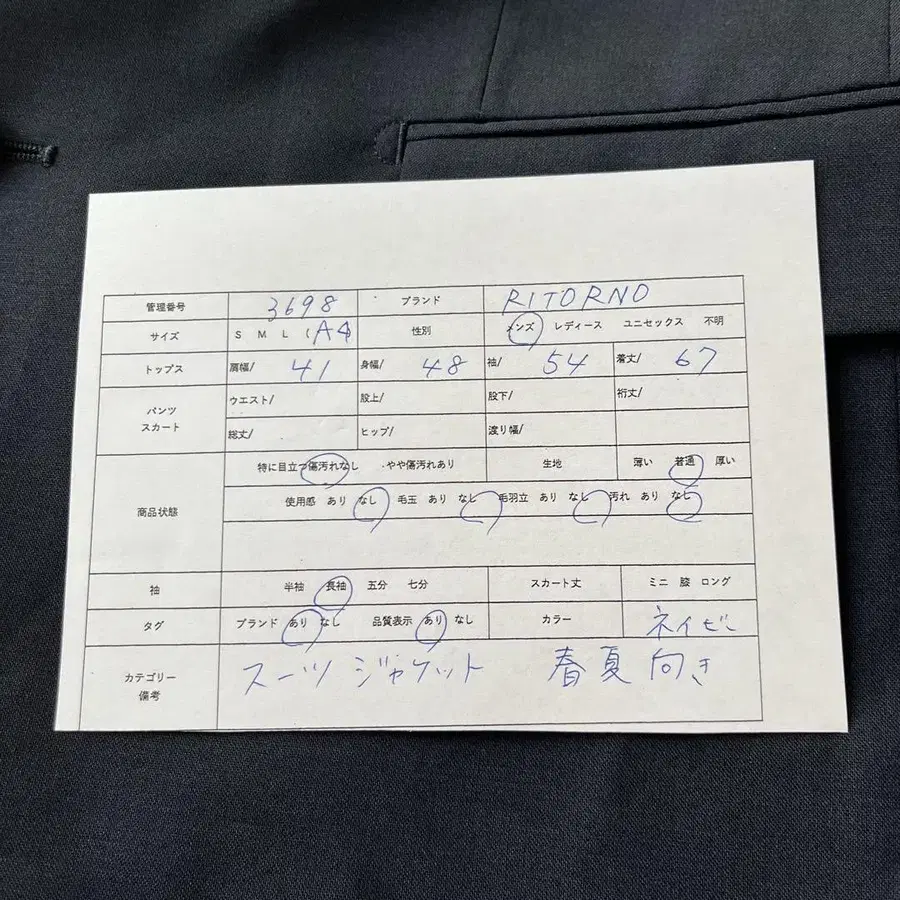 管理番号 3698 ブランド RITORNO
サイズ S M L (A4) 性別 メンズ レディース ユニセックス 不明
トップス 肩幅/ 41 身幅/ 48 袖/ 54 着丈/ 67
パンツ スカート ウエスト/ 股上/ 股下/ 裄丈/
総丈/ ヒップ/ 渡り幅/
商品状態 特に目立つ傷汚れなし ・やや傷汚れあり 生地 薄い 普通 厚い
使用感 あり なし 毛玉 あり なし 毛羽立 あり なし 汚れ あり なし
袖 半袖 長袖 五分 七分 スカート丈 ミニ 膝 ロング
タグ ブランド あり なし 品質表示 あり なし カラー ネイビー
カテゴリー 備考 スーツジャケット 春夏向き